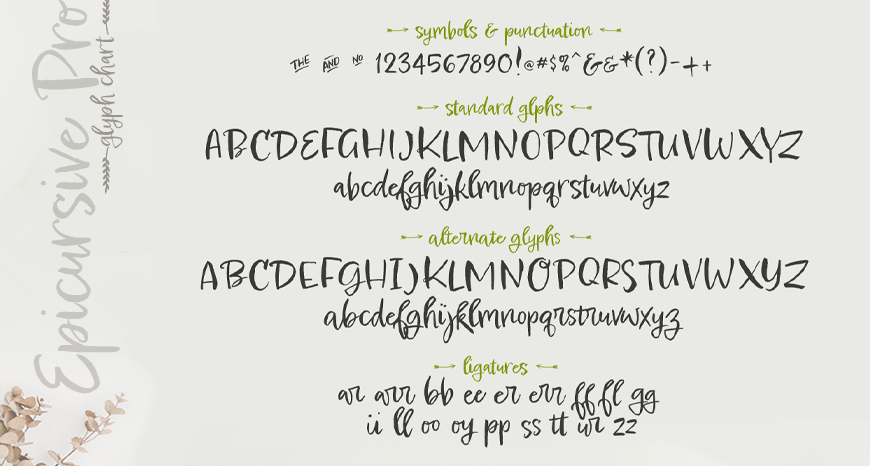 Epicursive Pro
glyph chart
symbols & punctuation
THE AND NO 1234567890!@#$%^&&*(?)-++
standard glphs
ABCDEFGHIJKLMNOPQRSTUVWXYZ
abcdefghijklmnopqrstuvwxyz
alternate glyphs
ABCDEFGHIJKLMNOPQRSTUVWXYZ
abcdefghijklmnopqrstruvwxyz
ligatures
ar arr bb ee er err ff fl gg
ii ll oo oy pp ss tt ur zz